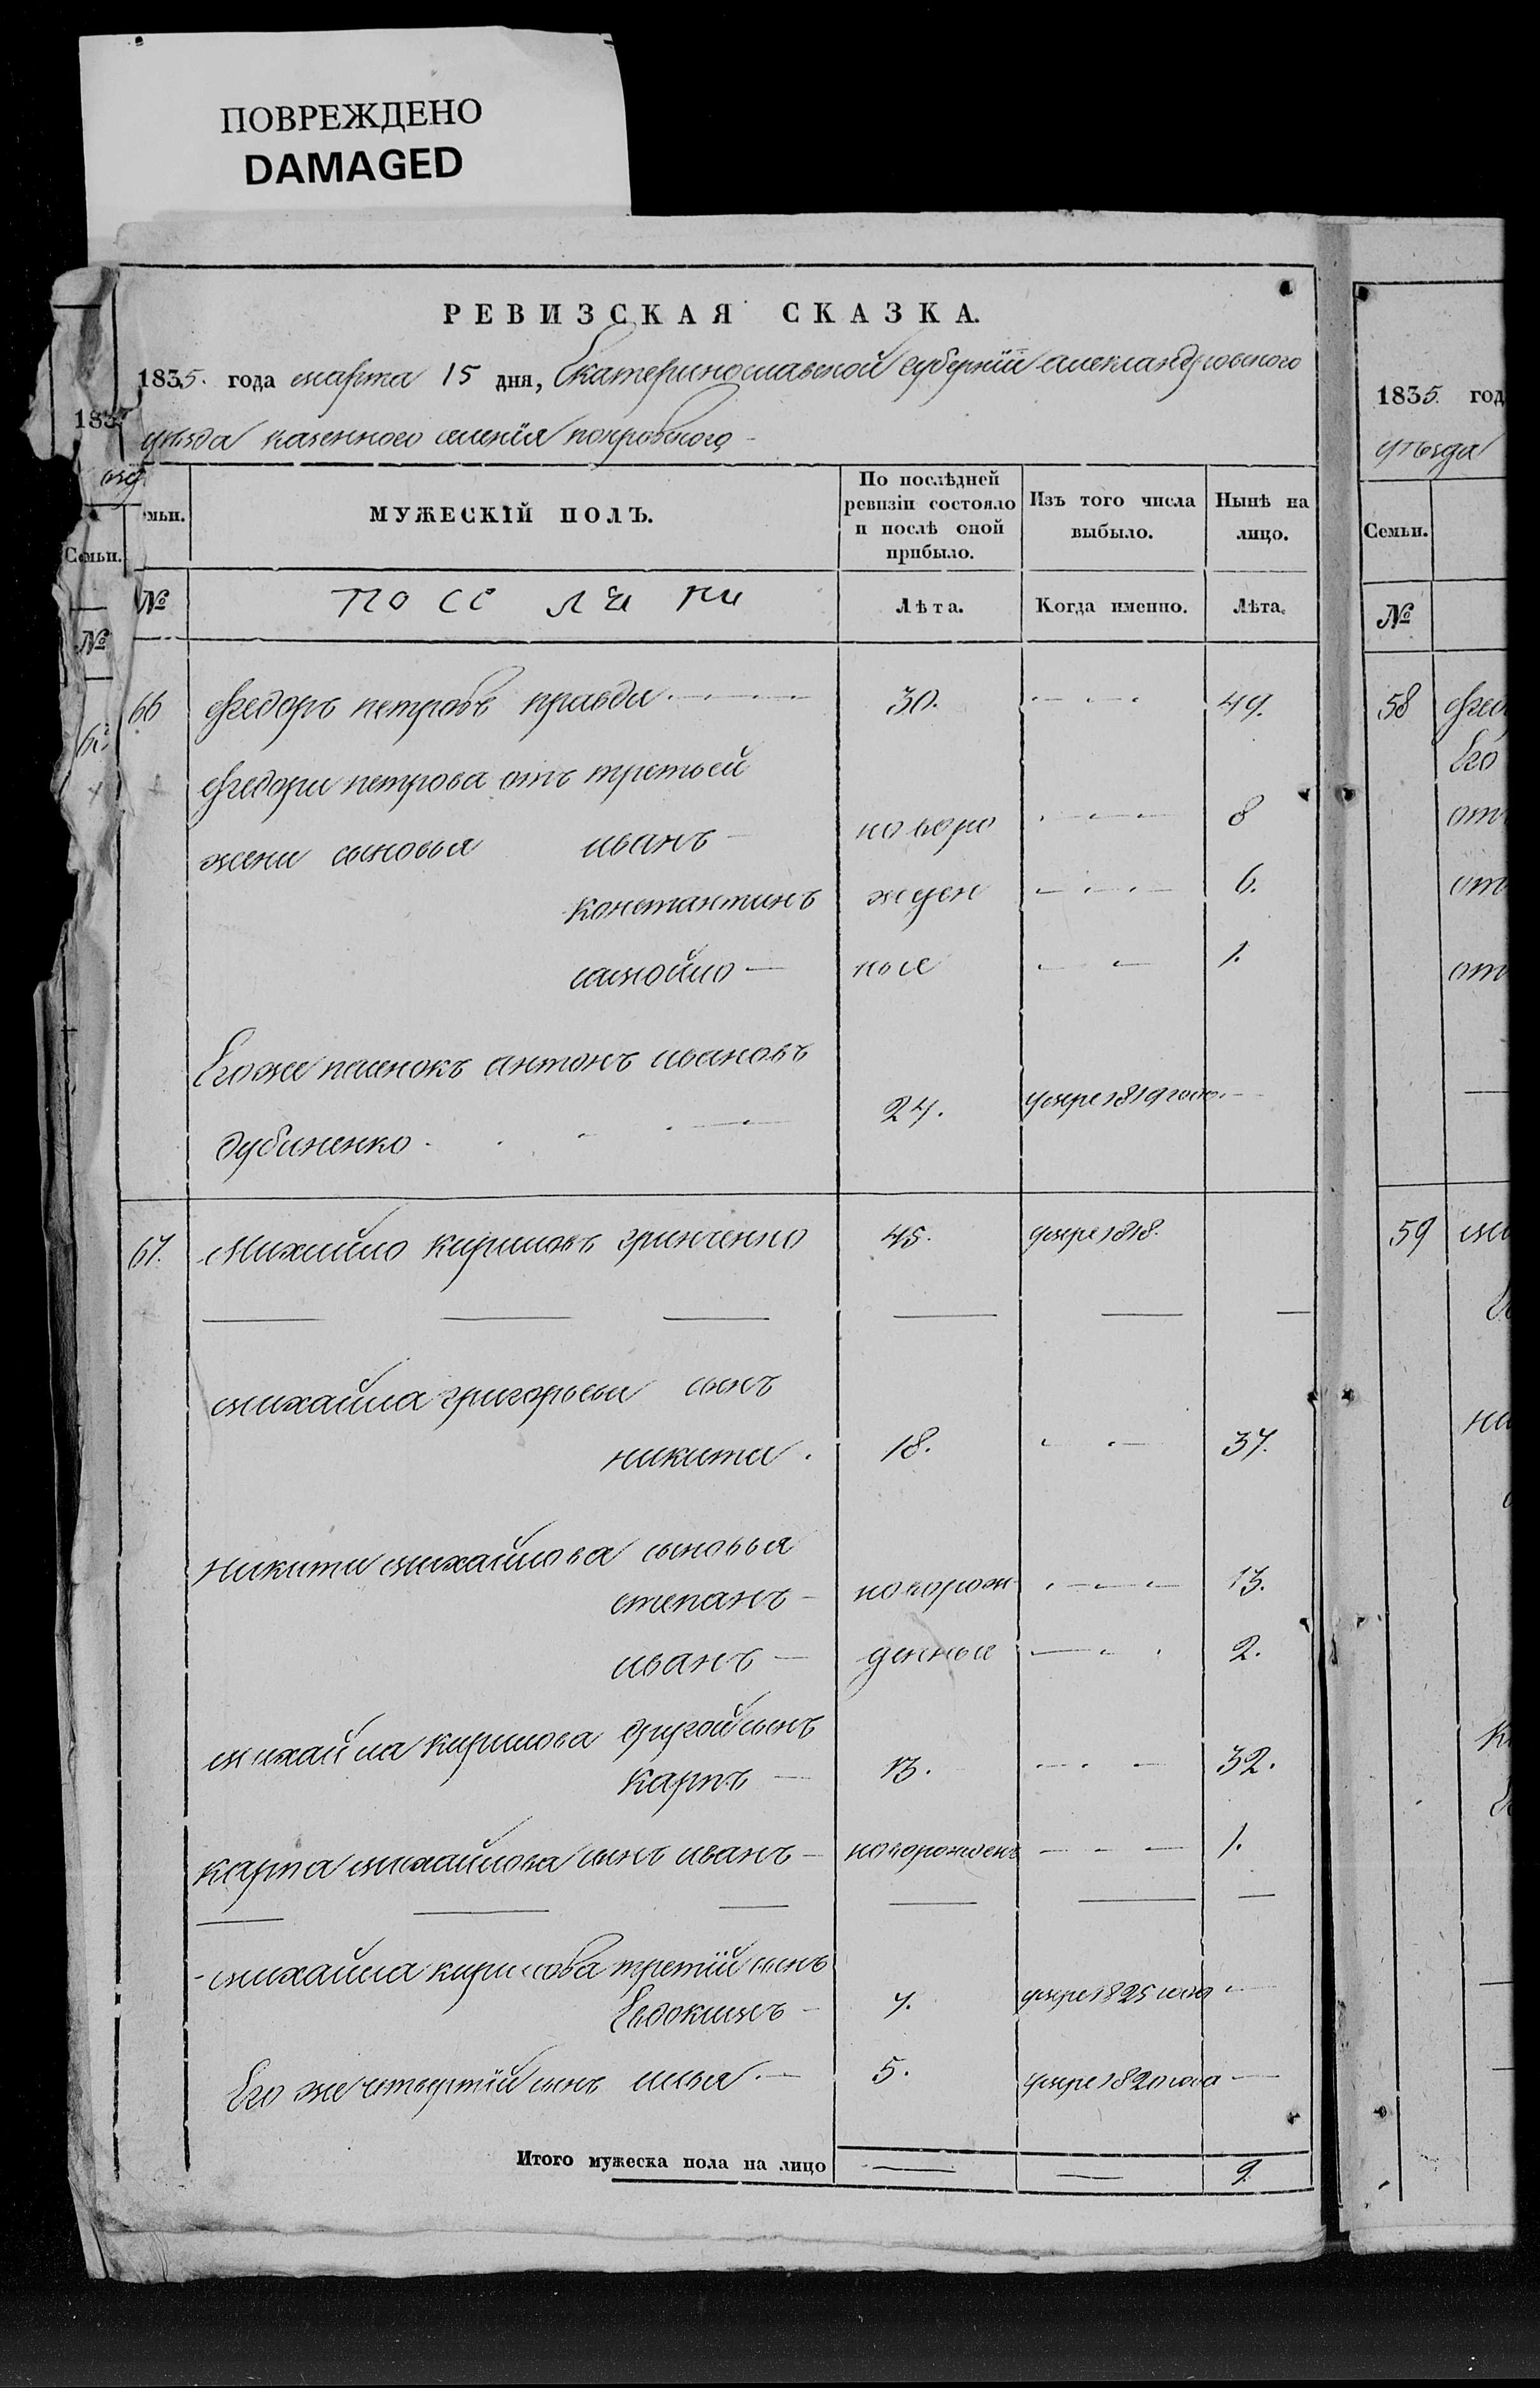 ПОВРЕЖДЕНО
DAMAGED
РЕВИЗСКАЯ СКАЗКА.
1835. года марта 15 дня, Екатеринославской губерніи александровского
уѣзда казенного селенія покровского
мьи. МУЖЕСКІЙ ПОЛЪ. По послѣдней ревизіи состояло и послѣ оной прибыло. Изъ того числа выбыло. Нынѣ на лицо.
№ Лѣта. Когда именно. Лѣта.
66 Федоръ петровъ правда 30. 49.
Федора петрова отъ третьей
жени сыновья иванъ новоро 8
константинъ жден 6.
самойло ные 1.
Его же пасинокъ антонъ ивановъ
дубиненко 24. умре 1819 года
67. Михайло кириловъ гринченко 45. умре 1818.
михайла григорьева сынъ
никита 18. 37.
Никити михайлова сыновья
степанъ новорож 13.
иванъ денные 2.
михайла кирилова другой сынъ
карпъ 13. 32.
карпа михайлова сынъ иванъ новорожденъ 1.
михайла кирилова третій сынъ
Евдокимъ 7. умре 1825 года
Его же четвертій сынъ илья 5. умре 1820 года
Итого мужеска пола на лицо 9.
183
Семьи.
№
1835. год
уѣзда
Семьи.
№
58
Его
от
от
от
59